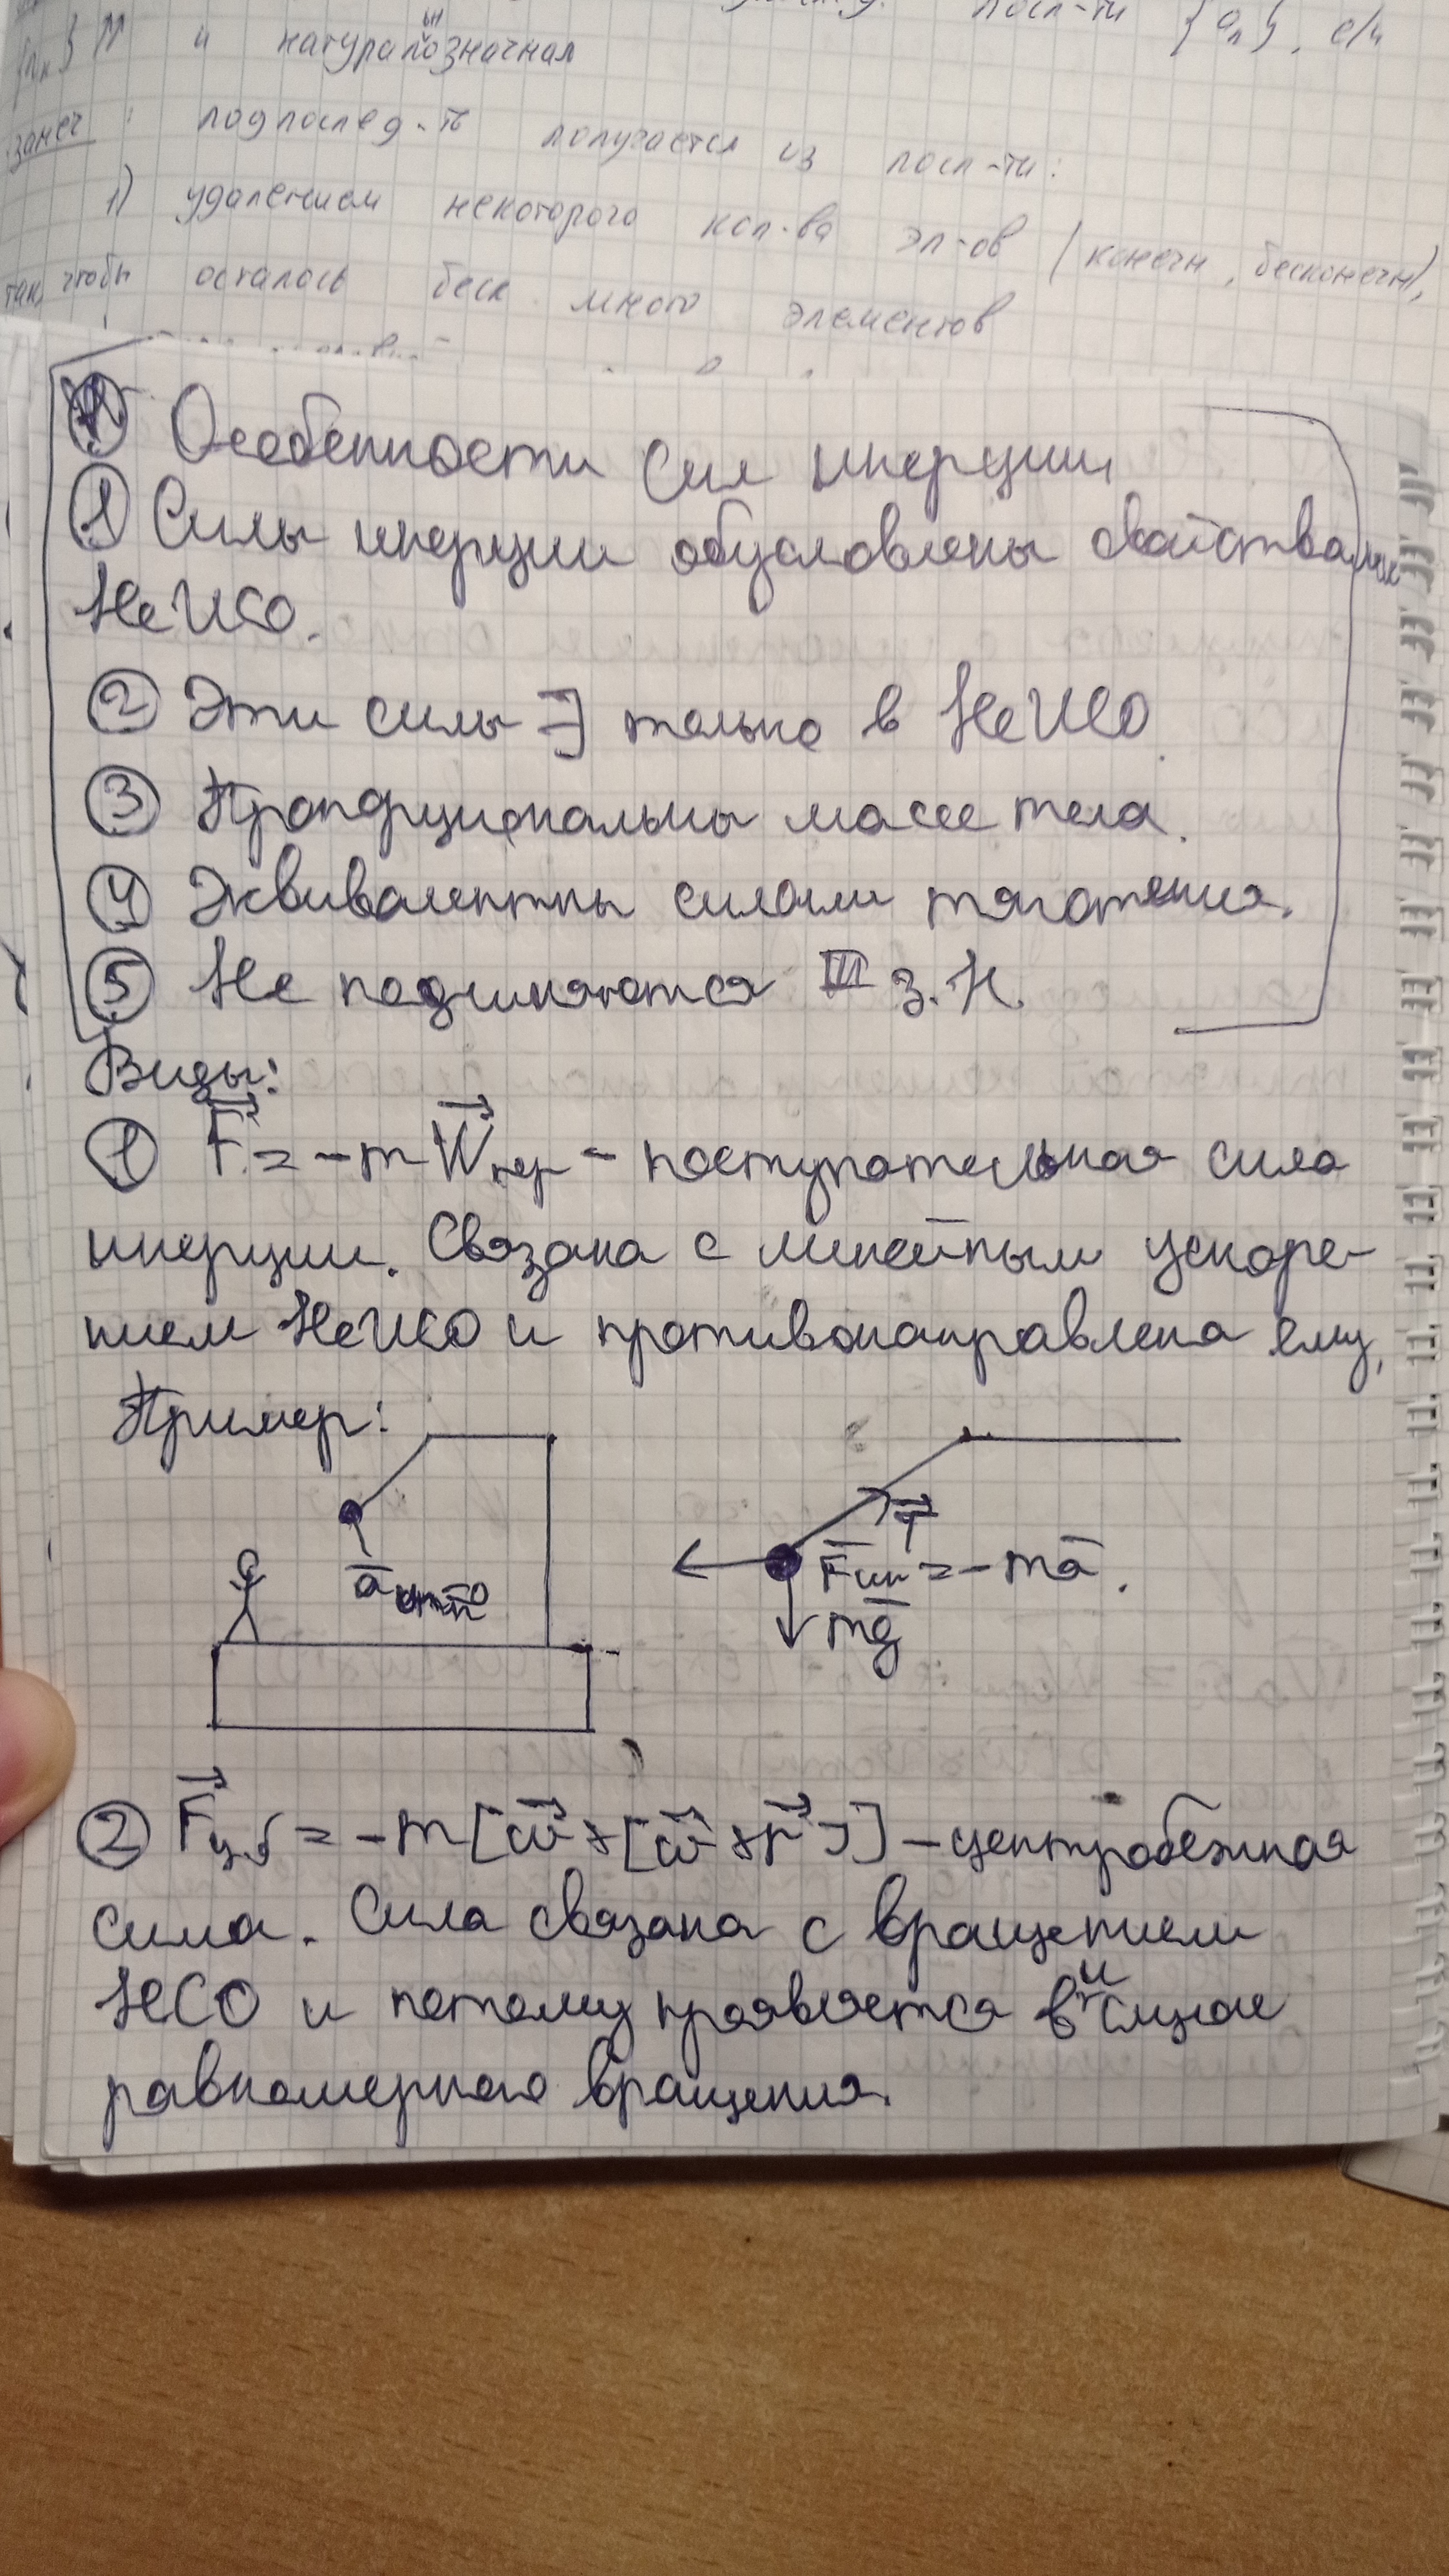 посл-ти {a_n}, е/и
{n_k} и натуральнозначная
замеч: подпослед-ть получается из посл-ти:
1) удалением некоторого кол-ва эл-ов (конечн, бесконечн),
так, чтобы осталось беск. много элементов
Особенности сил инерции
① Силы инерции обусловлены свойствами
НеИСО.
② Эти силы ∃ только в НеИСО.
③ Пропорциональны массе тела.
④ Эквивалентны силами тяготения.
⑤ Не подчиняются III з. Н.
Виды:
① F⃗ = -mW⃗пер - поступательная сила
инерции. Связана с линейным ускоре-
нием НеИСО и противонаправлена ему.
Пример:
T⃗
a̅
F̅ин = -ma̅.
mg̅
② F⃗цб = -m[ω⃗×[ω⃗×r⃗]] - центробежная
сила. Сила связана с вращением
НСО и потому проявляется и в случае
равномерного вращения.